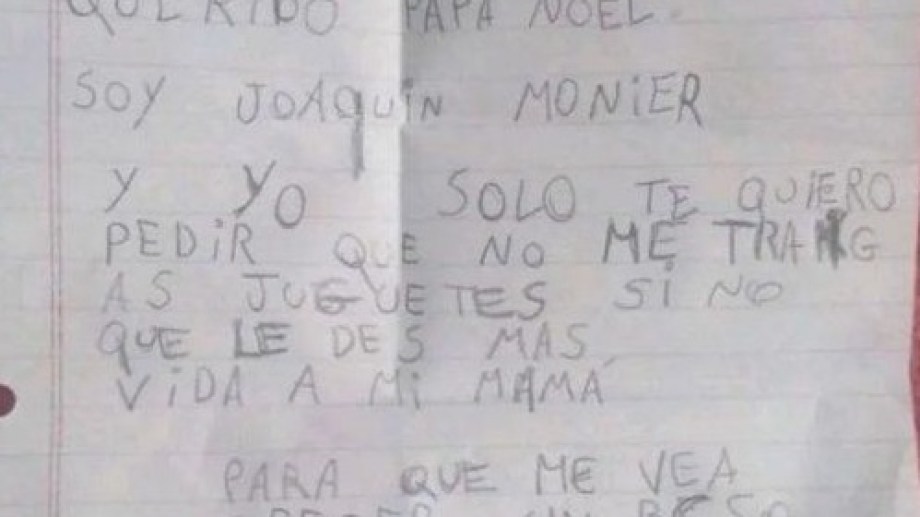 QUERIDO PAPA NOEL.
SOY JOAQUiN MONiER
Y YO SOLO TE QUIERO
PEDiR QUE NO ME TRANG
AS JUGUETES Si NO
QUE LE DES MAS
ViDA A Mi MAMA
PARA QUE ME VEA
UN BESO